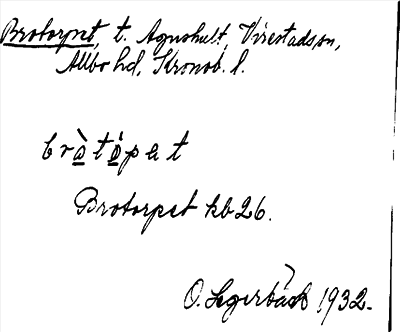 Brotorpet, t. Agushult, Virestads sn,
Allbo hd, Kronob. l.
bròtópet
Brotorpet kb 26.
O. Segerbäck 1932.